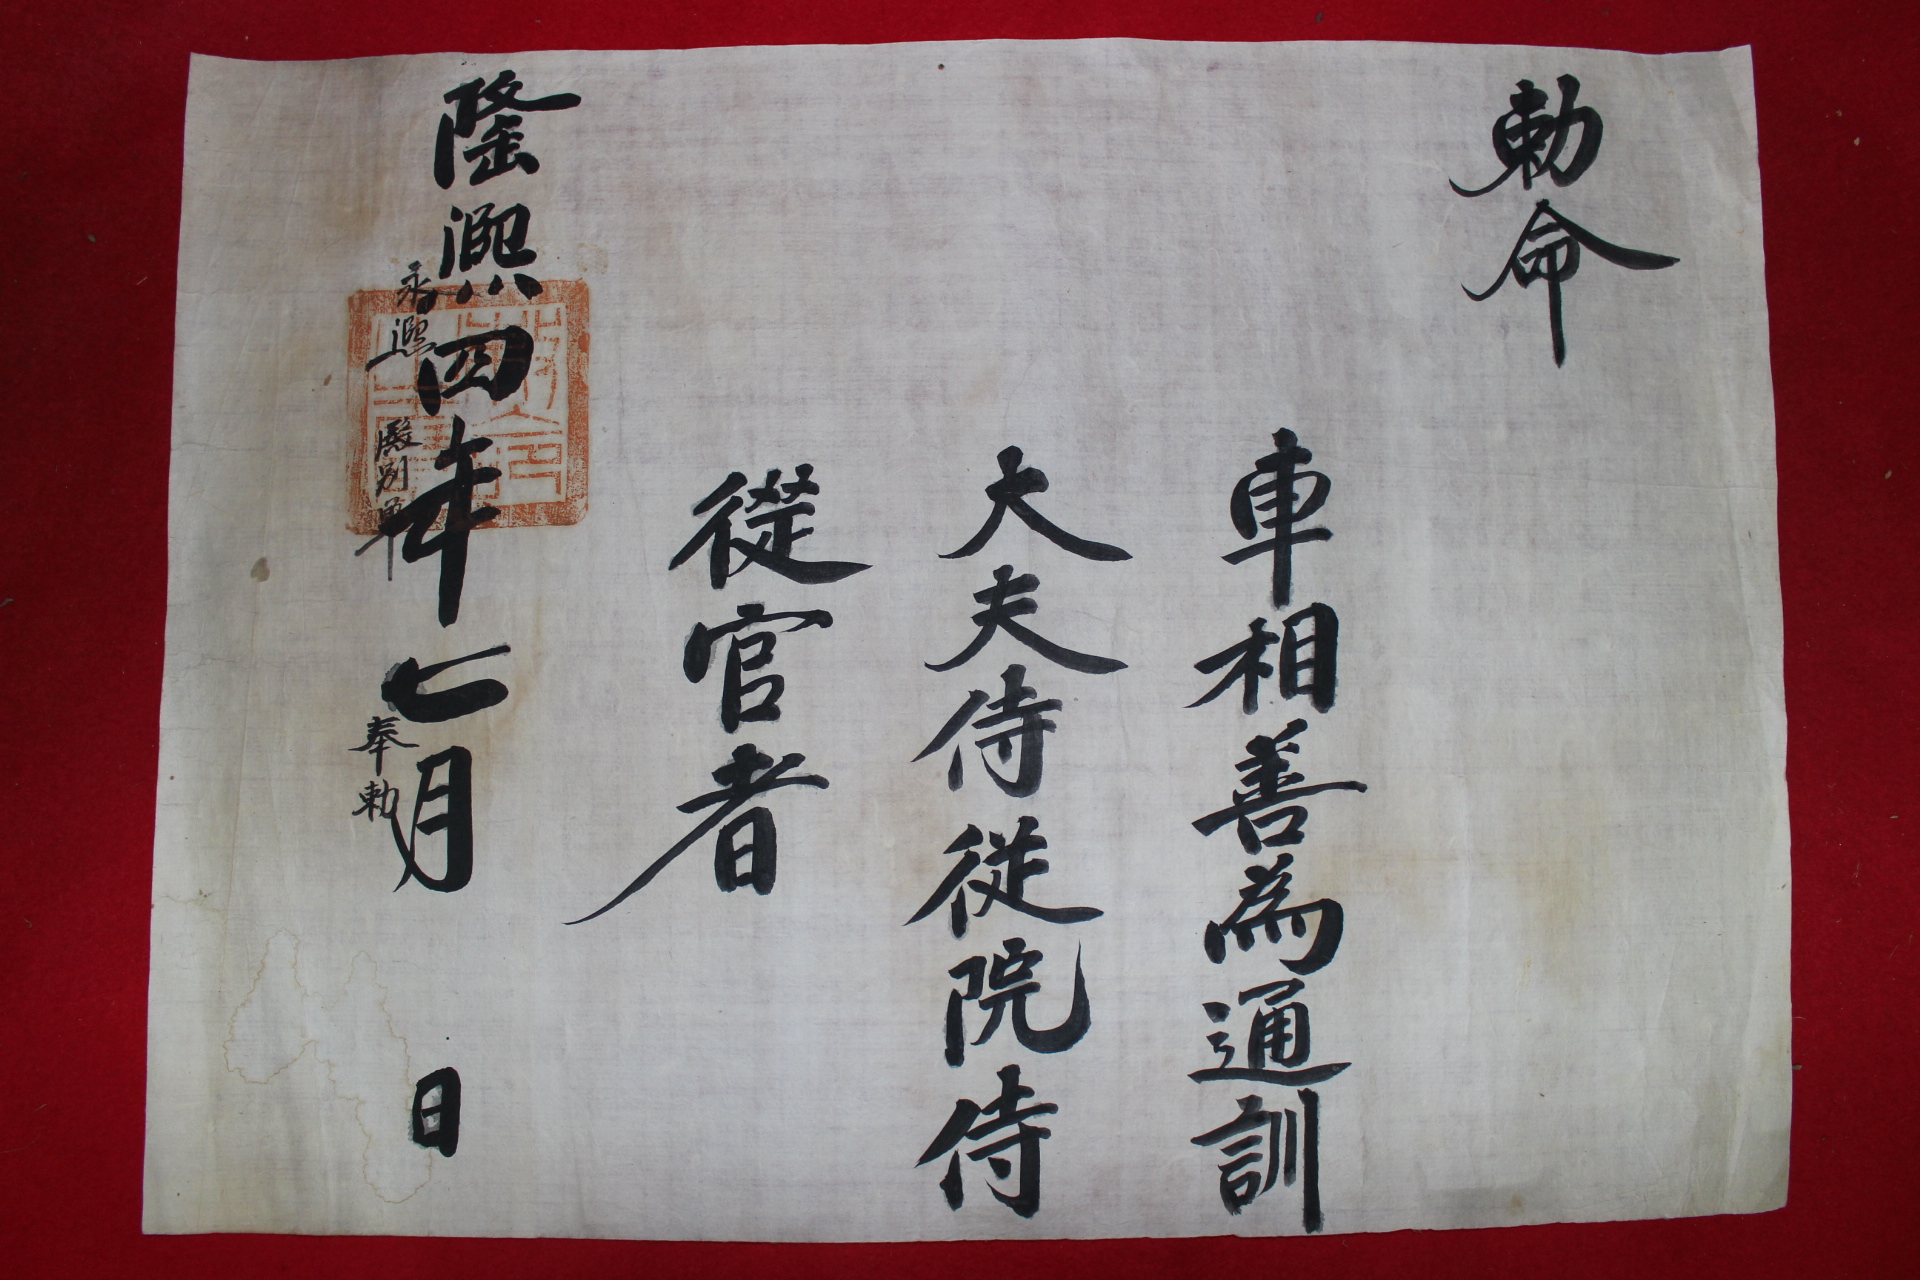 勅命
車相善為通訓
大夫侍從院侍
從官者
隆熙四年七月　日
永禧殿別單
奉勅